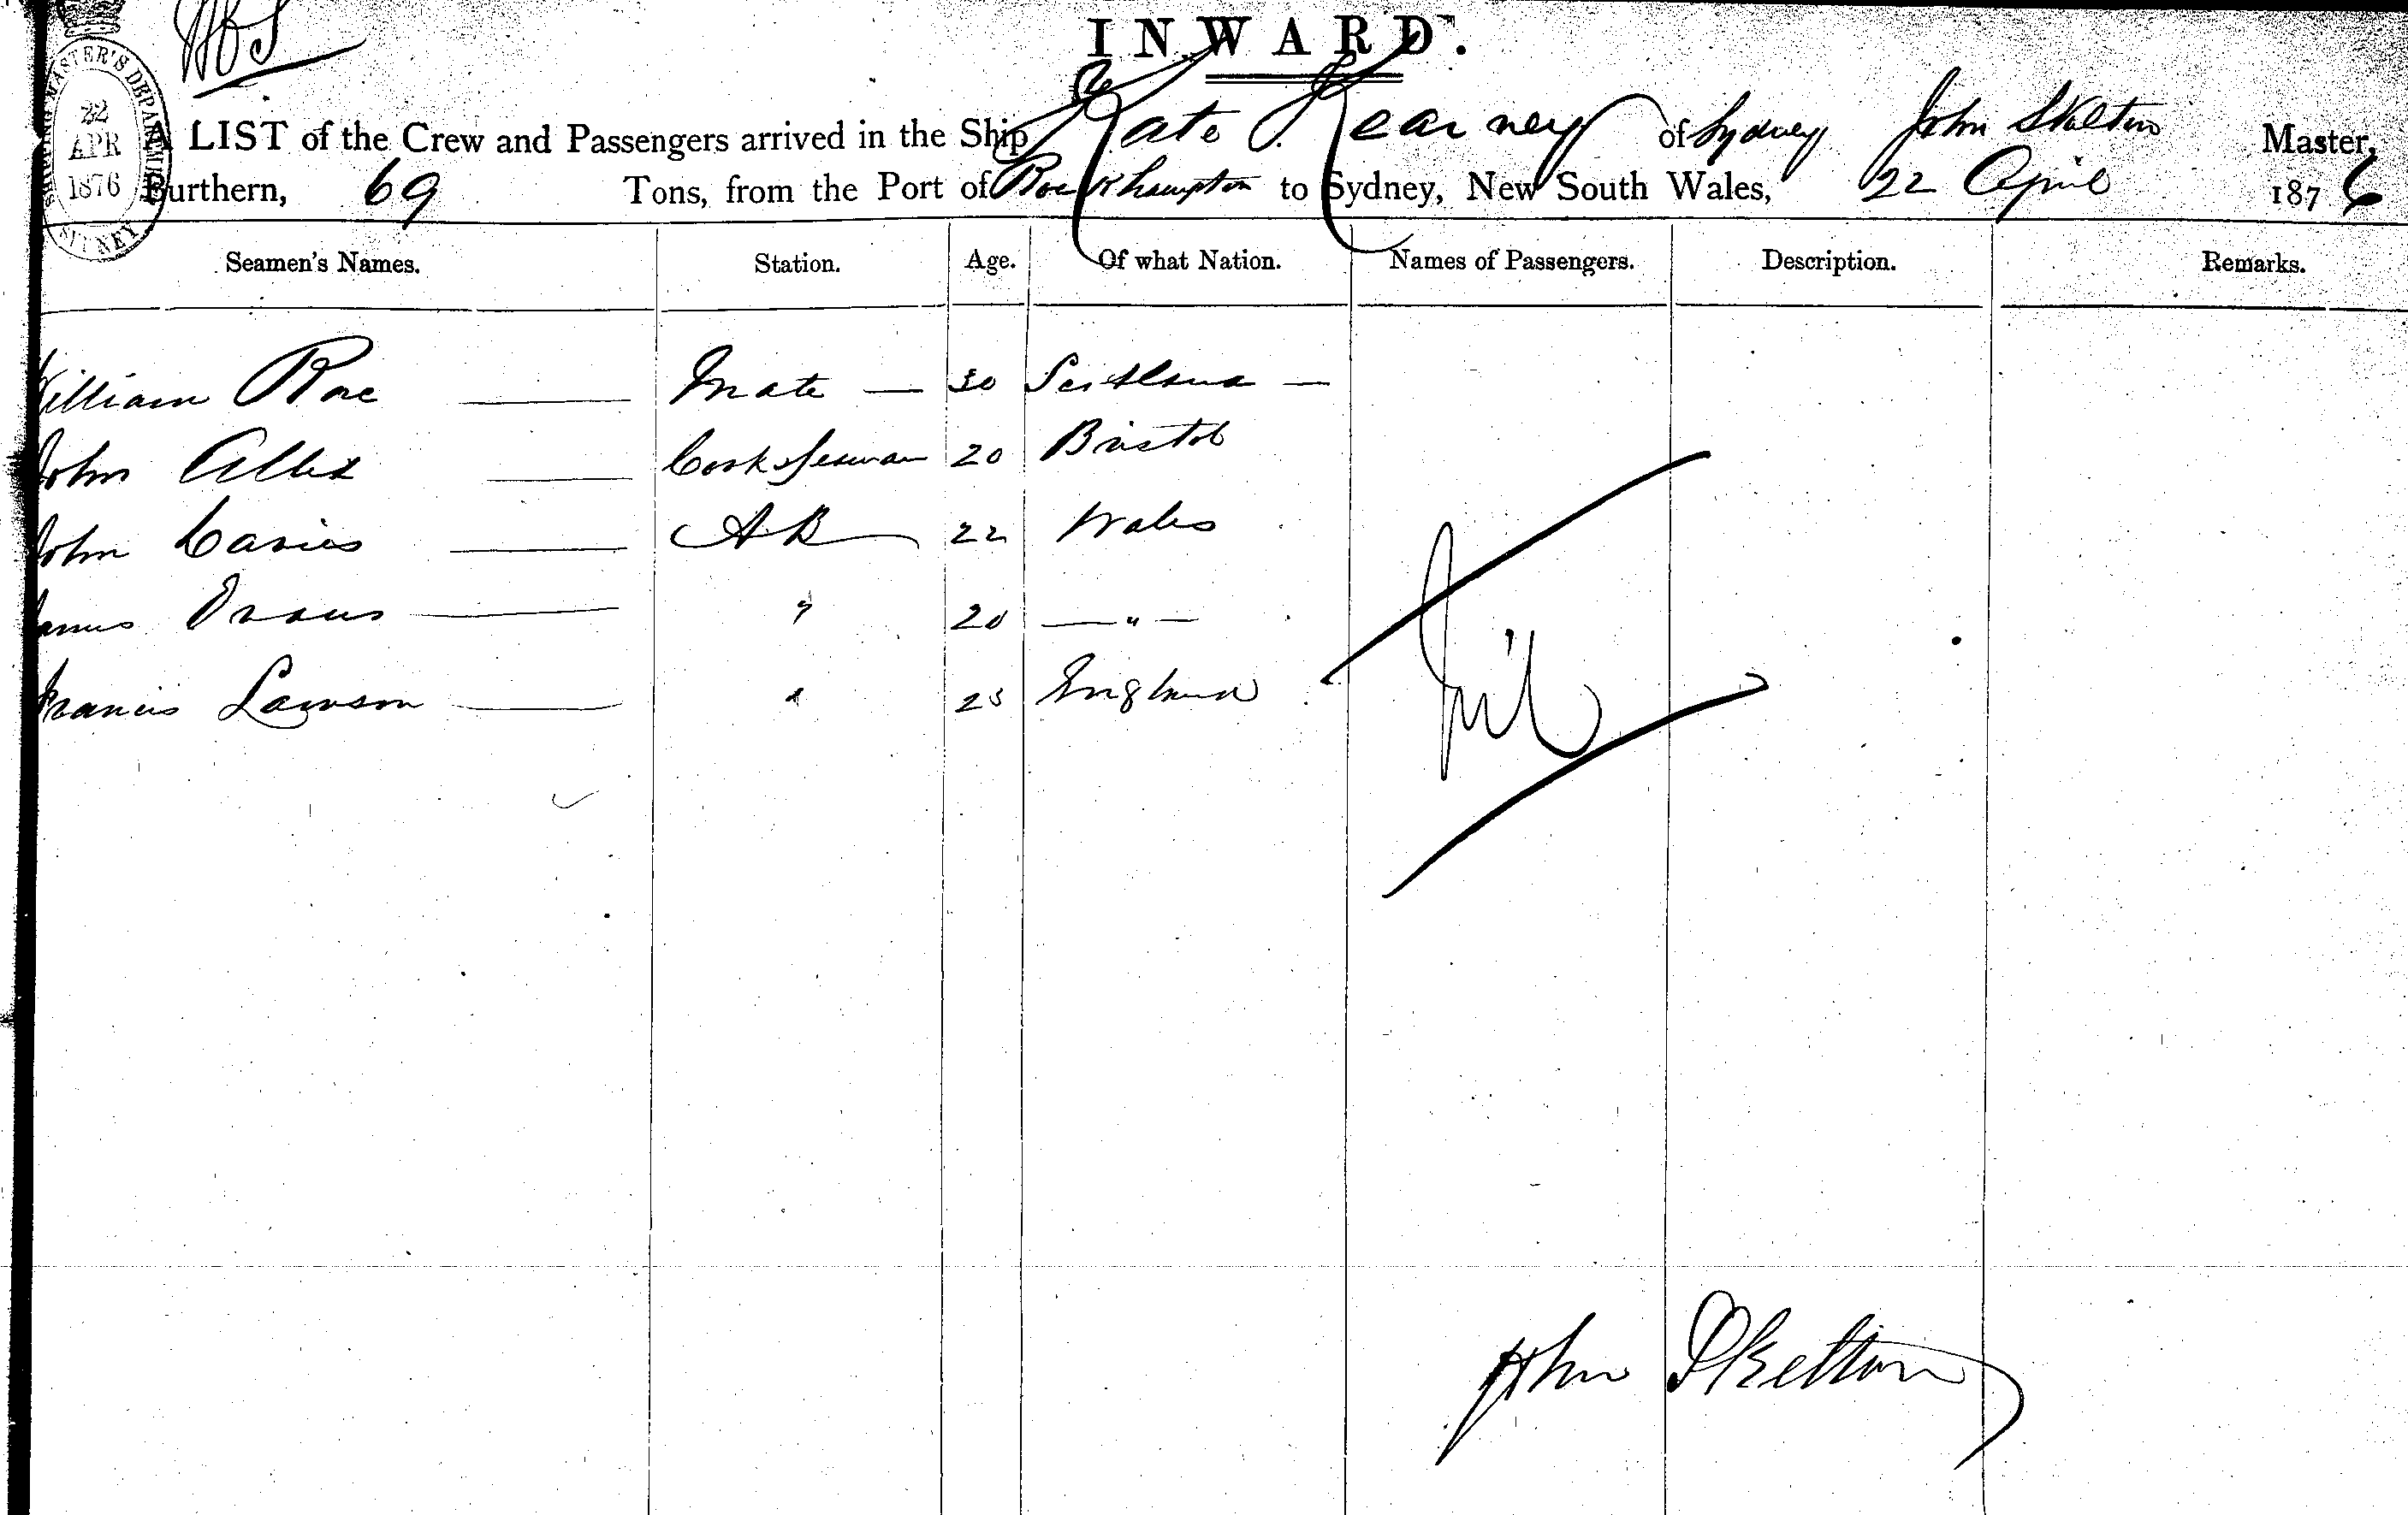 INWARD.
SHIPPING MASTER'S DEPARTMENT
22
APR
1876
SYDNEY
A LIST of the Crew and Passengers arrived in the Ship Kate Kearney of Sydney John Skelton Master,
Burthern, 69 Tons, from the Port of Rockhampton to Sydney, New South Wales, 22 April 1876
Seamen's Names. Station. Age. Of what Nation. Names of Passengers. Description. Remarks.
William Roe Mate 30 Scotland
John Cook & Seaman 20 Bristol
John Davies AB 22 Wales
James Evans " 20 "
Francis Lawson " 25 England
Nil
John Skelton